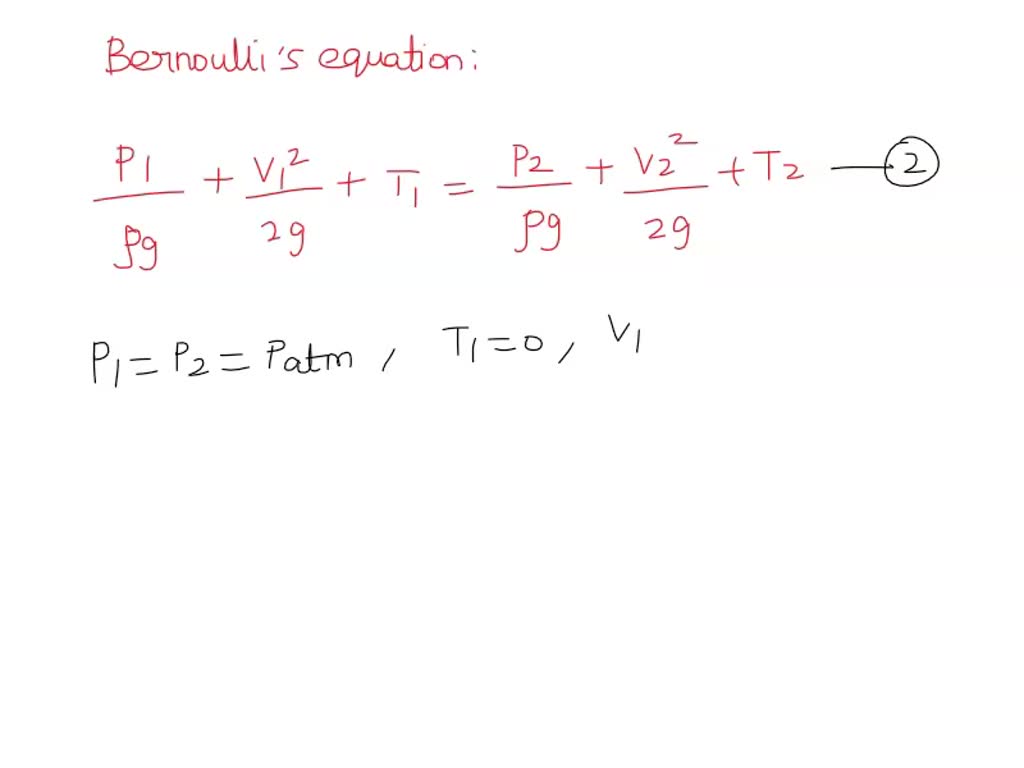 Bernoulli's equation:
P1/ρg + V1²/2g + T1 = P2/ρg + V2²/2g + T2 — ②
P1 = P2 = Patm, T1 = 0, V1